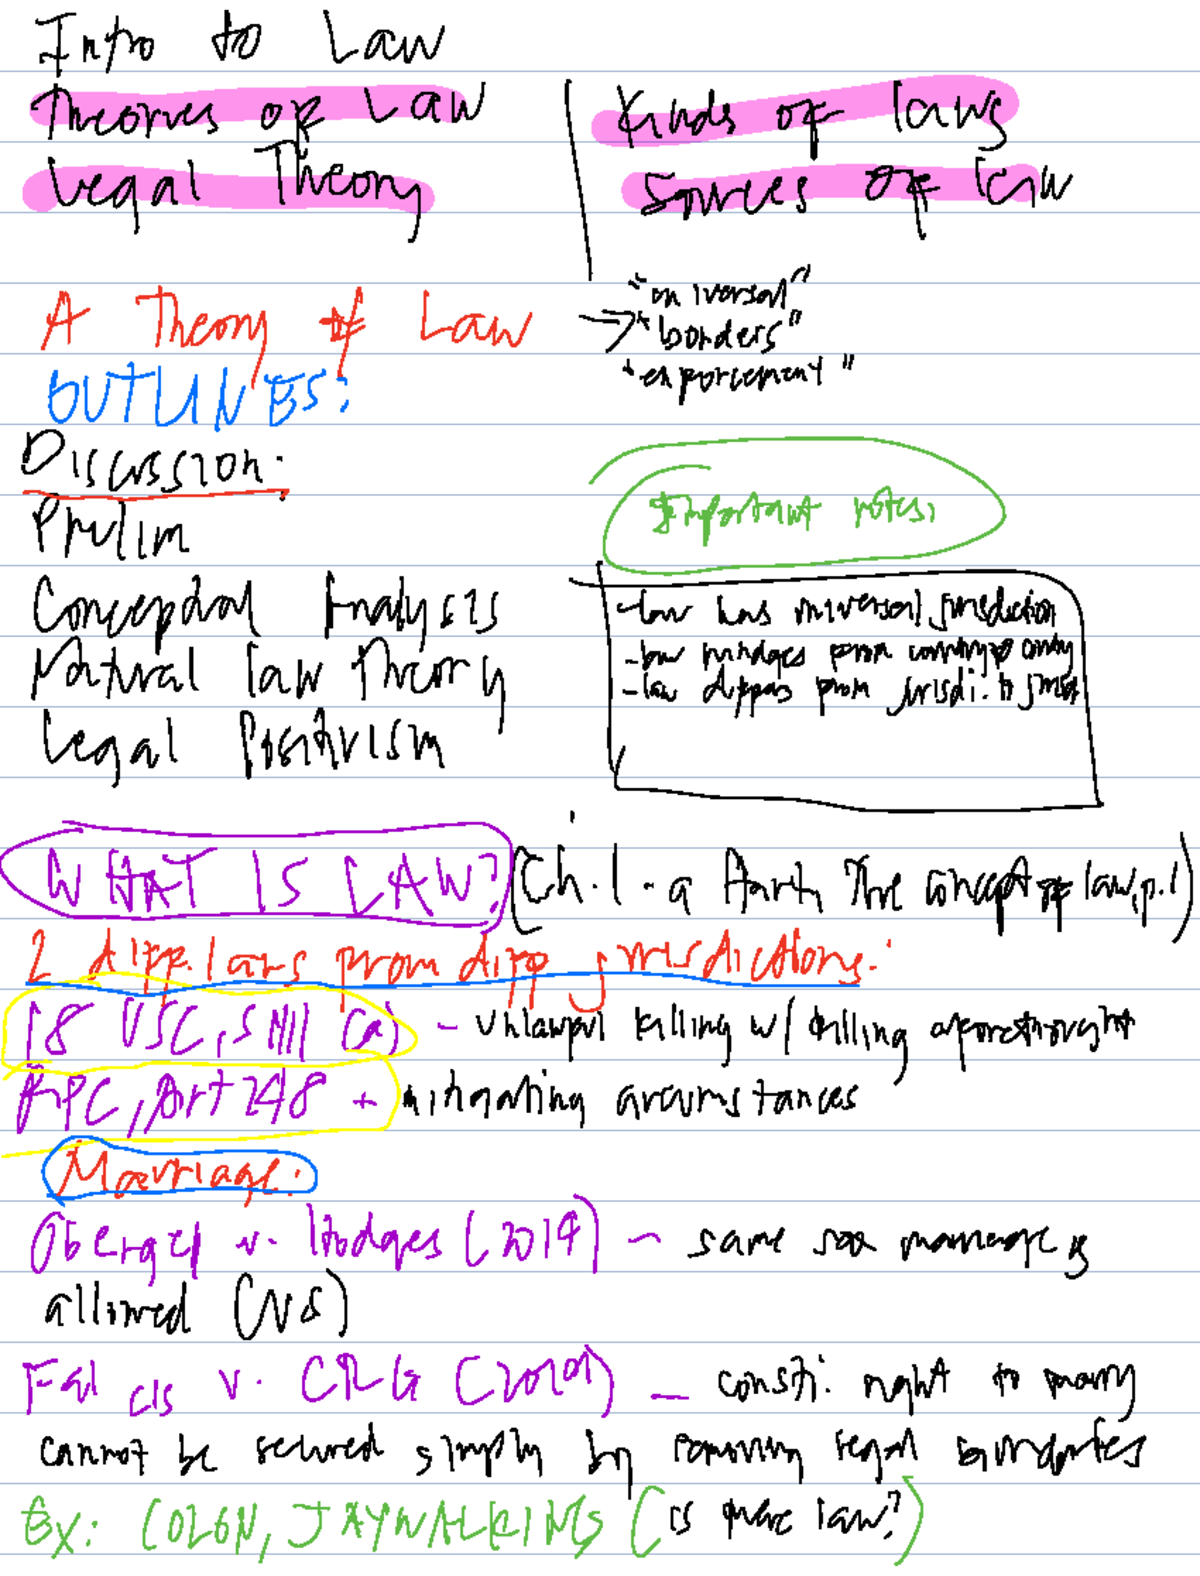 Intro to Law
Theories of Law
Legal Theory
Kinds of laws
Sources of law
A Theory of Law
→ "universal"
"borders"
"enforcement"
OUTLINES:
Discussion:
Prelim
Conceptual Analysis
Natural law Theory
Legal Positivism
Important notes:
- law has universal jurisdiction
- law from country to country
- law differs from jurisdi. to jurisd
WHAT IS LAW? (Ch. 1 - a Hart, The concept of law, p.1)
2 diff. laws from diff jurisdictions:
18 USC, S 1111 (a) - unlawful killing w/ killing aforethought
RPC, Art 248 + mitigating circumstances
Marriage:
Obergef v. Hodges (2014) - same sex marriage is
allowed (US)
Falcis v. CRG (2019) - consti. right to marry
cannot be secured simply by removing legal boundaries
Ex: COLGN, JAYWALKING (is there law?)